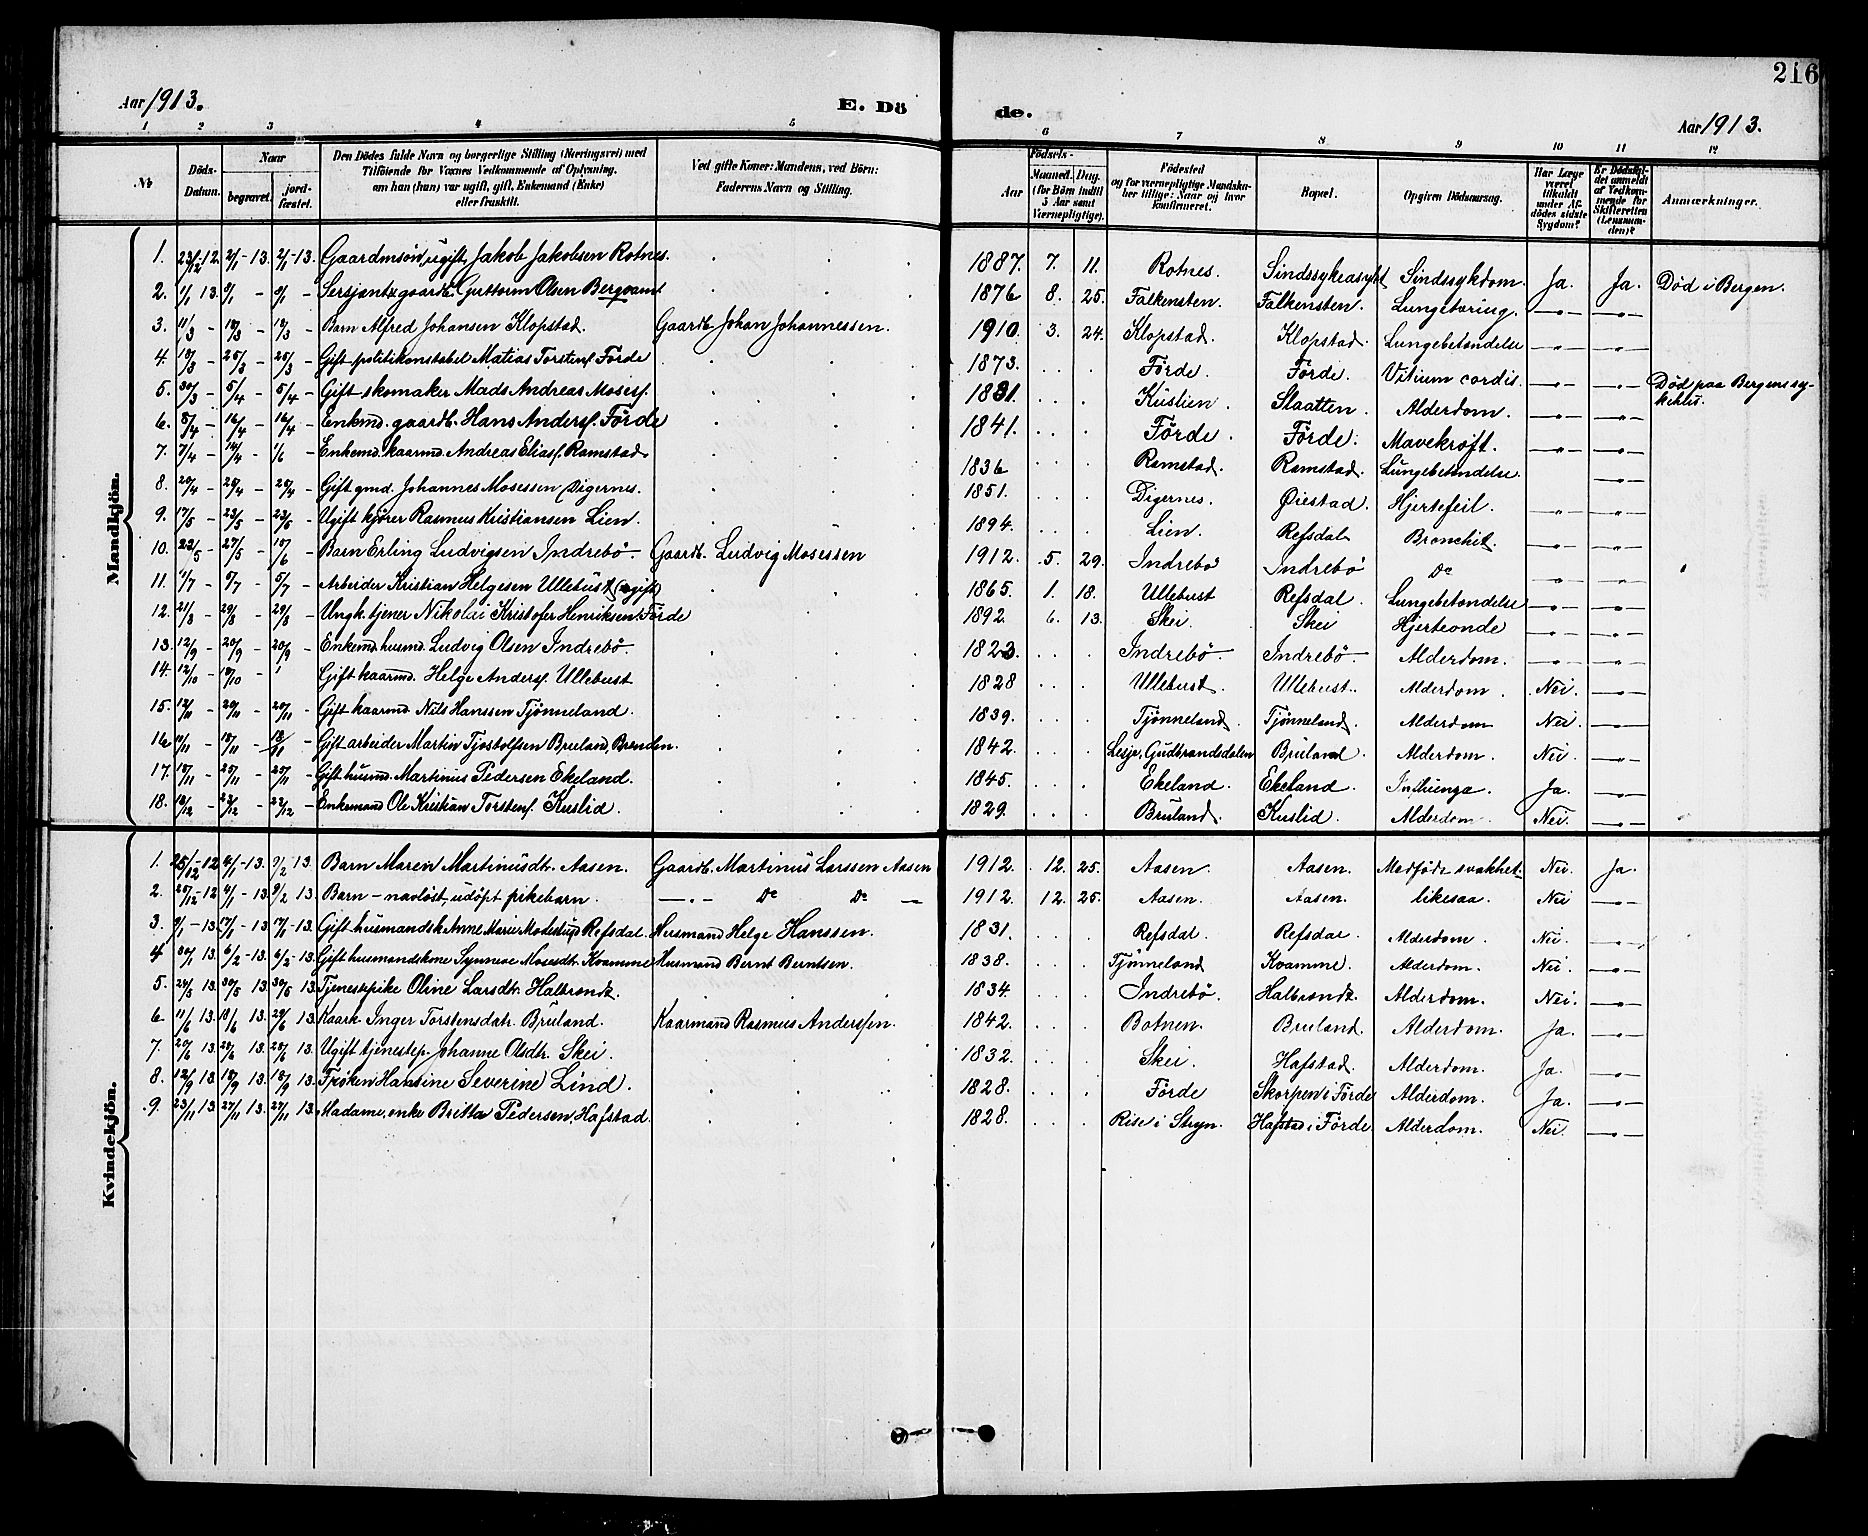 216
Aar 1913.
E. Dö
de.
Aar 1913.
1 2 3 4 5 6 7 8 9 10 11 12
№
Döds-Datum.
Naar
begravet.
jord-fæstet.
Den Dödes fulde Navn og borgerlige Stilling (Næringsvei) med
Tilföiende for Voxnes Vedkommende af Oplysning,
om han (hun) var ugift, gift, Enkemand (Enke)
eller fraskilt.
Ved gifte Koner: Mandens, ved Börn:
Faderens Navn og Stilling.
Födsels-
Aar
Maaned. Dag.
(for Börn indtil
5 Aar samt
Værnepligtige).
Födested
og for værnepligtige Mandska-
ber tillige: Naar og hvor
konfirmeret.
Bopæl.
Opgiven Dödsaarsag.
Har Læge
været
tilkaldt
under Af-
dödes sidste
Sygdom?
Er Dödsfal-
det anmeldt
af Vedkom-
mende for
Skifteretten
(Lensman-
den)?
Anmærkninger.
Mandkjön.
1. 23/12 12. 2/1 - 13. 2/1 - 13. Gaardmsön, ugift, Jakob Jakobsen Rotnes. 1887. 7. 11. Rotnes. Sindssykeasyl Sindssykdom. Ja. Ja. Död i Bergen.
2. 1/1 13. 9/1 - 9/1 - Sersjant & gaardb. Guttorm Olsen Bergvam 1876 8. 25. Falkensten. Falkensten. Lungetæring. -"- -"-
3. 11/3 - 18/3 - 18/3 - Barn Alfred Johansen Klopstad. Gaardb. Johan Johannessen. 1910. 3. 24. Klopstad. Klopstad. Lungebetændelse -"- -"-
4. 18/3 - 25/3 - 25/3 - Gift politikonstabel Matias Torstens. Förde 1873. Förde. Förde. Vitium cordis. -"- -"- Död paa Bergens sy-
kehus.
5. 30/3 - 5/4 - 5/4 - Gift skomaker Mads Andreas Moses. 1831. Kuslien. Slaatten. Alderdom. -"- -"-
6. 8/4 - 16/4 - 16/4 - Enkmd. gaardb. Hans Anders. Förde 1841. Förde. Förde. Mavekræft. -"- -"-
7. 7/4 - 14/4 - 1/6 - Enkemd. kaarmd. Andreas Elias. Ramstad 1836 Ramstad. Ramstad. Lungebetændelse. -"-
8. 20/4 - 25/4 - 25/4 - Gift gmd. Johannes Mosessen Digernes. 1851. Digernes. Øiestad. Hjertefeil. -"- -"-
9. 17/5 - 23/5 - 23/5 - Ugift kjörer Rasmus Kristiansen Lien. 1894. Lien. Refsdal Bronchit. -"- -"-
10. 22/5 - 27/5 - 15/6 - Barn Erling Ludvigsen Indrebö. Gaardb. Ludvig Mosessen 1912. 5. 29. Indrebö Indrebö Do -"- -"-
11. 1/7 - 5/7 - 5/7 - Arbeider Kristian Helgesen Ullebust (ugift) 1865. 1. 18. Ullebust Refsdal. Lungebetændelse -"- -"-
12. 21/8 - 29/8 - 29/8 - Ungk. tjener Nikolai Kristofer Henriksen Förde 1892. 6. 13. Skei. Skei Hjerteonde -"- -"-
13. 12/9 - 20/9 - 20/9 - Enkemd. husmd. Ludvig Olsen Indrebö. 1823. Indrebö. Indrebö. Alderdom. -"- -"-
14. 12/10 - 18/10 - Gift kaarmd. Helge Anders. Ullebust 1828 Ullebust. Ullebust. Alderdom. Nei. -"-
15. 12/11 - 20/11 - 20/11 - Gift kaarmd. Nils Hanssen Tjönneland. 1839. Tjönneland. Tjönneland. Alderdom Nei. -"-
16 11/11 - 18/11 - 18/11 - Gift arbeider Martin Tjostolfsen Bruland, Brenden. 1842. Lesje, Gudbrandsdalen Bruland Alderdom. Nei. -"-
17. 18/11 - 25/11 - 25/11 - Gift husmd. Martinus Pedersen Ekeland. 1845. Ekeland. Ekeland. Influenza. Ja. -"-
18. 18/12 - 22/12 - 22/12 - Enkemand Ole Kristian Torstens. Kuslid. 1829. Bruland. Kuslid. Alderdom. Nei. -"-
Kvindekjön.
1. 25/12 - 12. 4/1 - 13. 9/2 13. Barn Maren Martinusdtr. Aasen. Gaardb. Martinus Larssen Aasen 1912. 12. 25. Aasen. Aasen. Medfödt svakhet. Nei. Ja.
2. 25/12 - 12 4/1 - 13. 9/2 13. Barn - navlöst, udöpt pikebarn. -"- Do Do - 1912. 12. 25. Aasen. Aasen. likesaa. Nei -"-
3. 9/1 - 13. 17/1 - 13. 17/1 - 13. Gift husmandsk. Anne Marie Refsdal. Husmand Helge Hanssen. 1831. Refsdal. Refsdal Alderdom. Nei. -"-
4 30/1 13. 6/2 - 13. 6/2 - 13. Gift husmandskone Synneve Mosesdtr. Kvamme Husmand Bernt Berntsen. 1838. Tjönneland Kvamme. Alderdom. Nei. -"-
5. 24/5 13. 30/5 13. 30/5 13. Tjenestepike Oline Larsdtr. Halbrendt. 1834. Indrebö. Halbrendt. Alderdom. Nei. -"-
6. 11/6 13. 18/6 13. 29/6 13. Kaark. Inger Torstensdatr. Bruland. Kaarmand Rasmus Anderssen. 1842. Botnen. Bruland. Alderdom. Ja. -"-
7. 20/6 13. 28/6 13. 28/6 13. Ugift tjenestep. Johanne Olsdtr. Skei. 1832. Skei. Hafstad. Alderdom. Ja. -"-
8. 12/9 13. 18/9 13. 18/9 13. Fröken Hansine Severine Lind. 1828. Förde Skorpen i Förde Alderdom. Ja. -"-
9. 23/11 13. 27/11 13. 27/11 13. Madame, enke Britta Pedersen, Hafstad. 1828. Rise i Stryn. Hafstad i Förde Alderdom. Nei. -"-